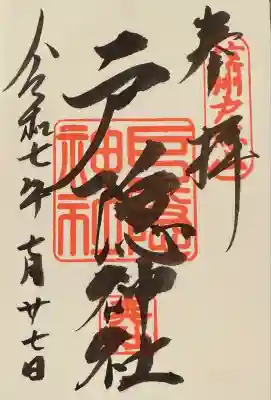 奉拝
戸隠神社
令和七年七月廿七日
戸隠
神社